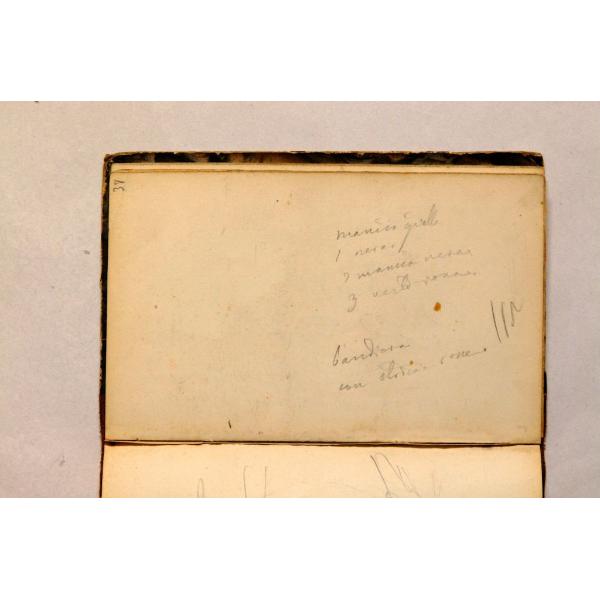 37
manica gialla
1 nera
2 manica nera
3 verde rossa
bandiera
con strisce rosse